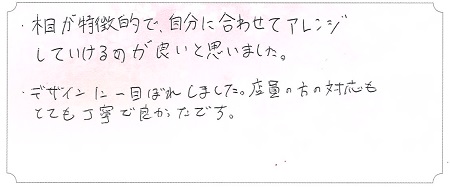 ・木目が特徴的で、自分に合わせてアレンジ
していけるのが良いと思いました。
・デザインに一目ぼれしました。店員の方の対応も
とても丁寧で良かったです。